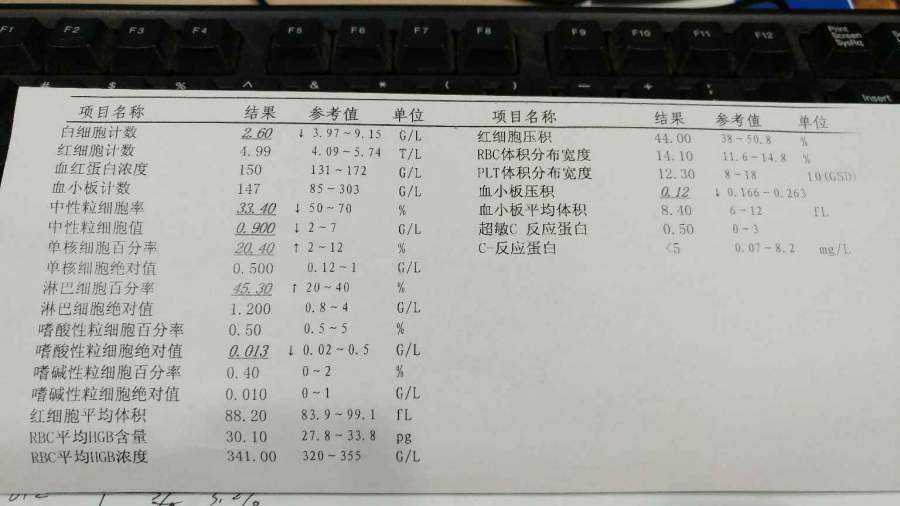 F1 F2 F3 F4 F5 F6 F7 F8 F9 F10 F11 F12 Print Screen SysRq
# $ % ^ & * ( ) Insert
项目名称 结果 参考值 单位
白细胞计数 2.60 ↓ 3.97~9.15 G/L
红细胞计数 4.99 4.09~5.74 T/L
血红蛋白浓度 150 131~172 G/L
血小板计数 147 85~303 G/L
中性粒细胞率 33.40 ↓ 50~70 %
中性粒细胞值 0.900 ↓ 2~7 G/L
单核细胞百分率 20.40 ↑ 2~12 %
单核细胞绝对值 0.500 0.12~1 G/L
淋巴细胞百分率 45.30 ↑ 20~40 %
淋巴细胞绝对值 1.200 0.8~4 G/L
嗜酸性粒细胞百分率 0.50 0.5~5 %
嗜酸性粒细胞绝对值 0.013 ↓ 0.02~0.5 G/L
嗜碱性粒细胞百分率 0.40 0~2 %
嗜碱性粒细胞绝对值 0.010 0~1 G/L
红细胞平均体积 88.20 83.9~99.1 fL
RBC平均HGB含量 30.10 27.8~33.8 pg
RBC平均HGB浓度 341.00 320~355 G/L
项目名称 结果 参考值 单位
红细胞压积 44.00 38~50.8 %
RBC体积分布宽度 14.10 11.6~14.8 %
PLT体积分布宽度 12.30 8~18 10(GSD)
血小板压积 0.12 ↓ 0.166~0.263
血小板平均体积 8.40 6~12 fL
超敏C 反应蛋白 0.50 0~3
C-反应蛋白 <5 0.07~8.2 mg/L